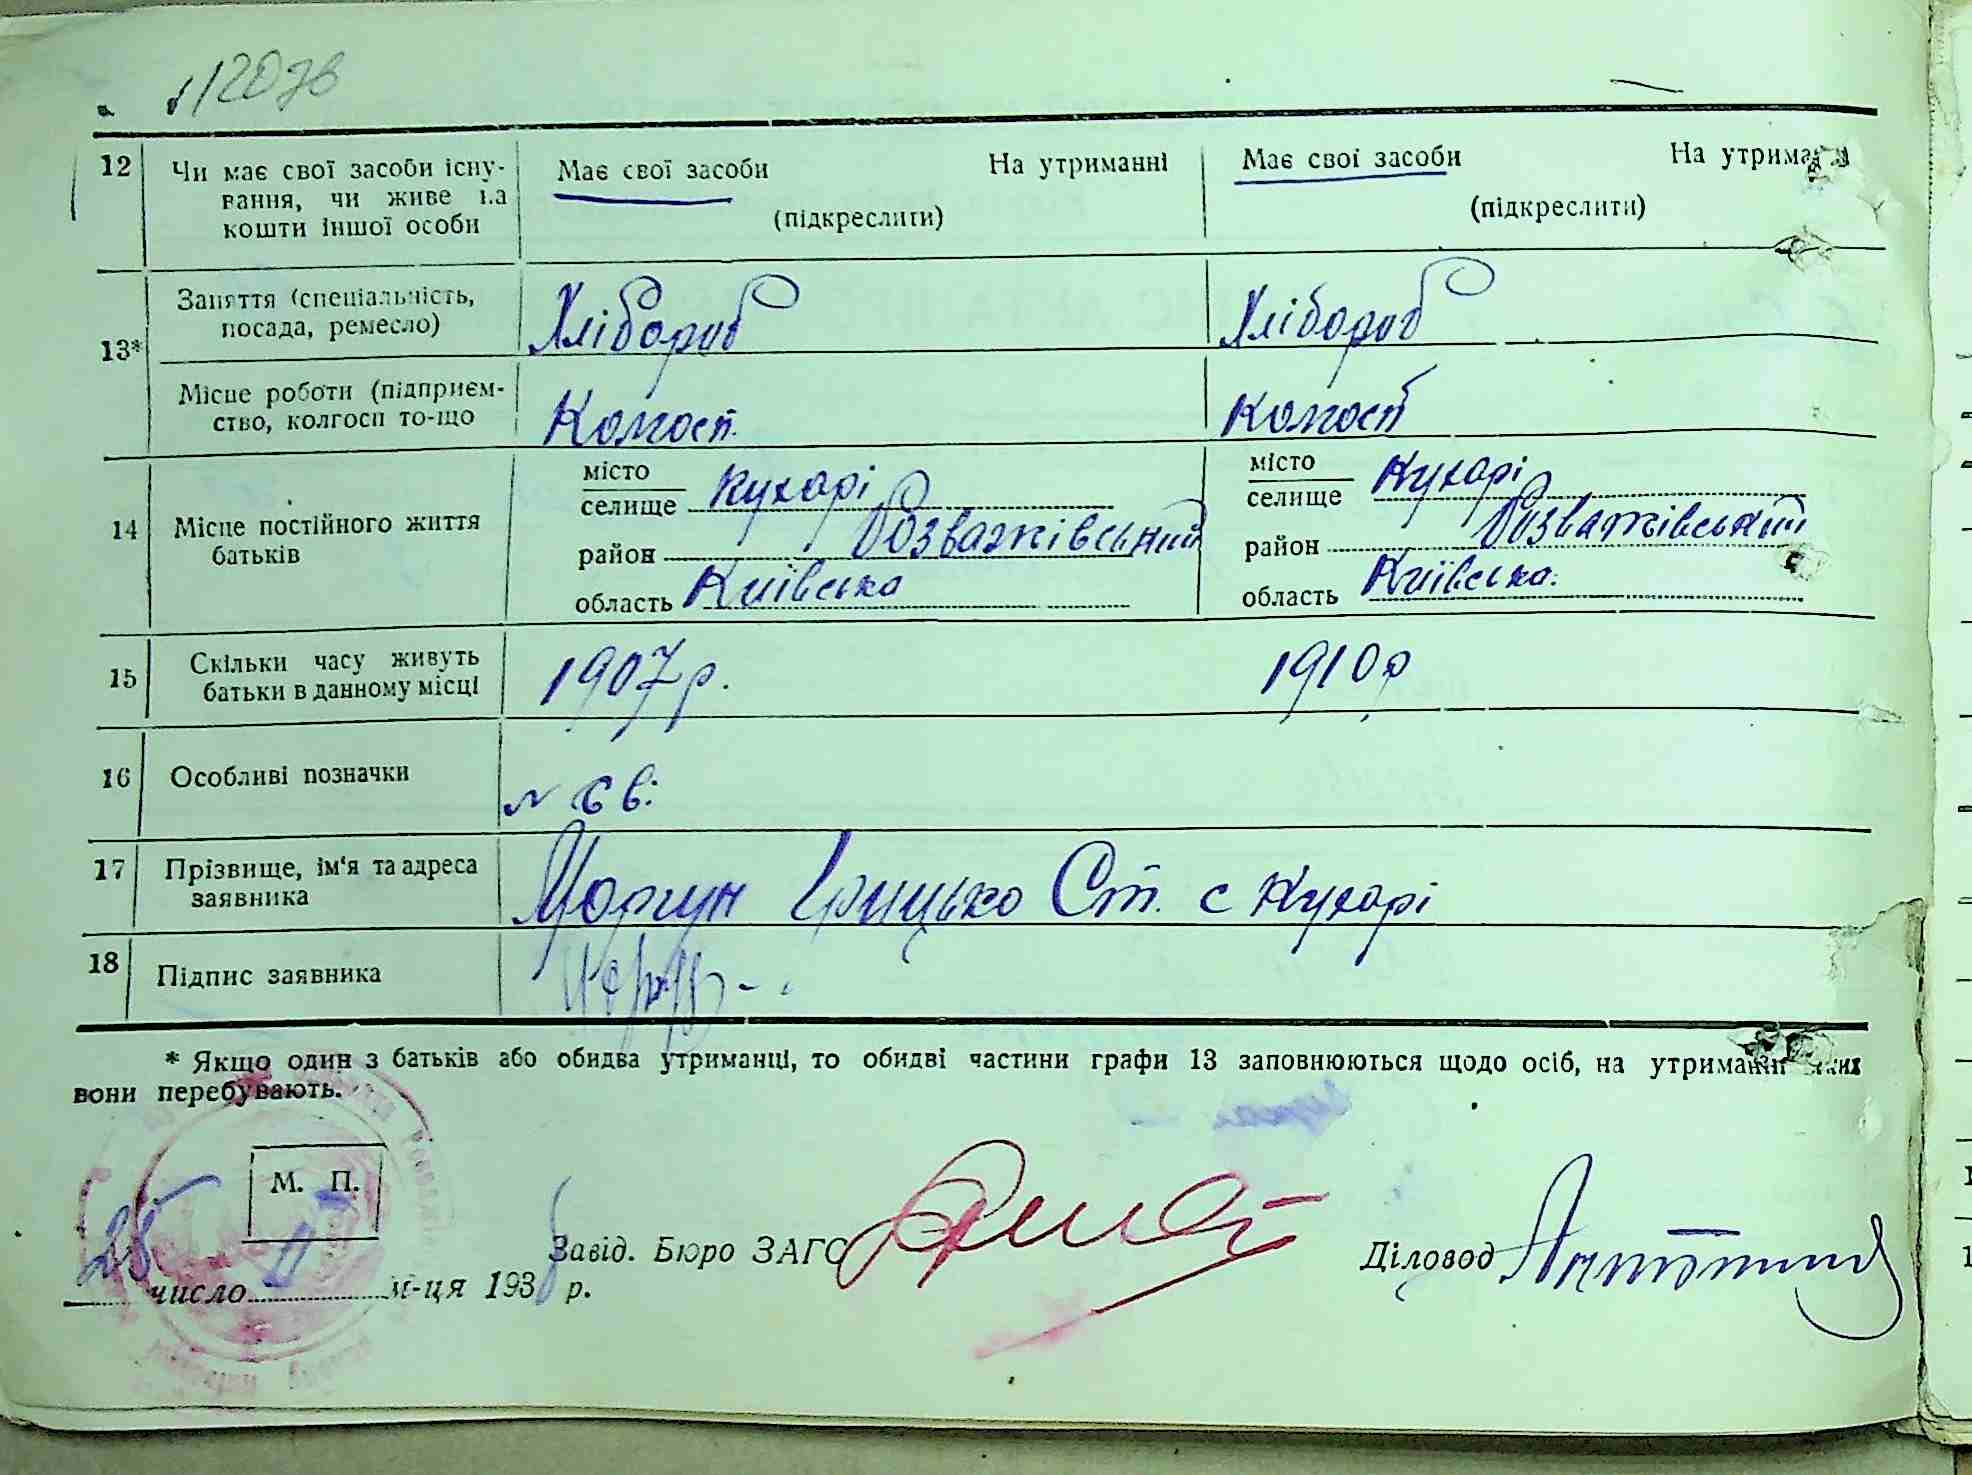 12 Чи має свої засоби існу- Має свої засоби На утриманні Має свої засоби На утриманні
вання, чи живе на (підкреслити) (підкреслити)
кошти іншої особи
13* Заняття (спеціальність, Хлібороб Хлібороб
посада, ремесло)
Місце роботи (підприєм- Колгосп. Колгосп
ство, колгосп то-що
14 Місце постійного життя місто Кухарі місто Кухарі
батьків селище селище
район Розважівський район Розважівський
область Київська область Київська.
15 Скільки часу живуть 1907 р. 1910 р
батьки в данному місці
16 Особливі позначки
17 Прізвище, ім'я та адреса Моргун Грицько Ст. с Кухарі
заявника
18 Підпис заявника
* Якщо один з батьків або обидва утриманці, то обидві частини графи 13 заповнюються щодо осіб, на утриманні яких
вони перебувають.
М. П.
25 число м-ця 1938 р. Завід. Бюро ЗАГС Діловод